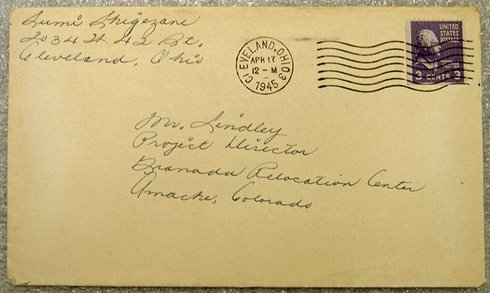 Sumi Shigezane
2034 W. 42 St.
Cleveland, Ohio
CLEVELAND, OHIO 3
APR 17
12-M
1945
UNITED
STATES
POSTAGE
3 CENTS 3
Mr. Lindley
Project Director
Granada Relocation Center
Amache, Colorado